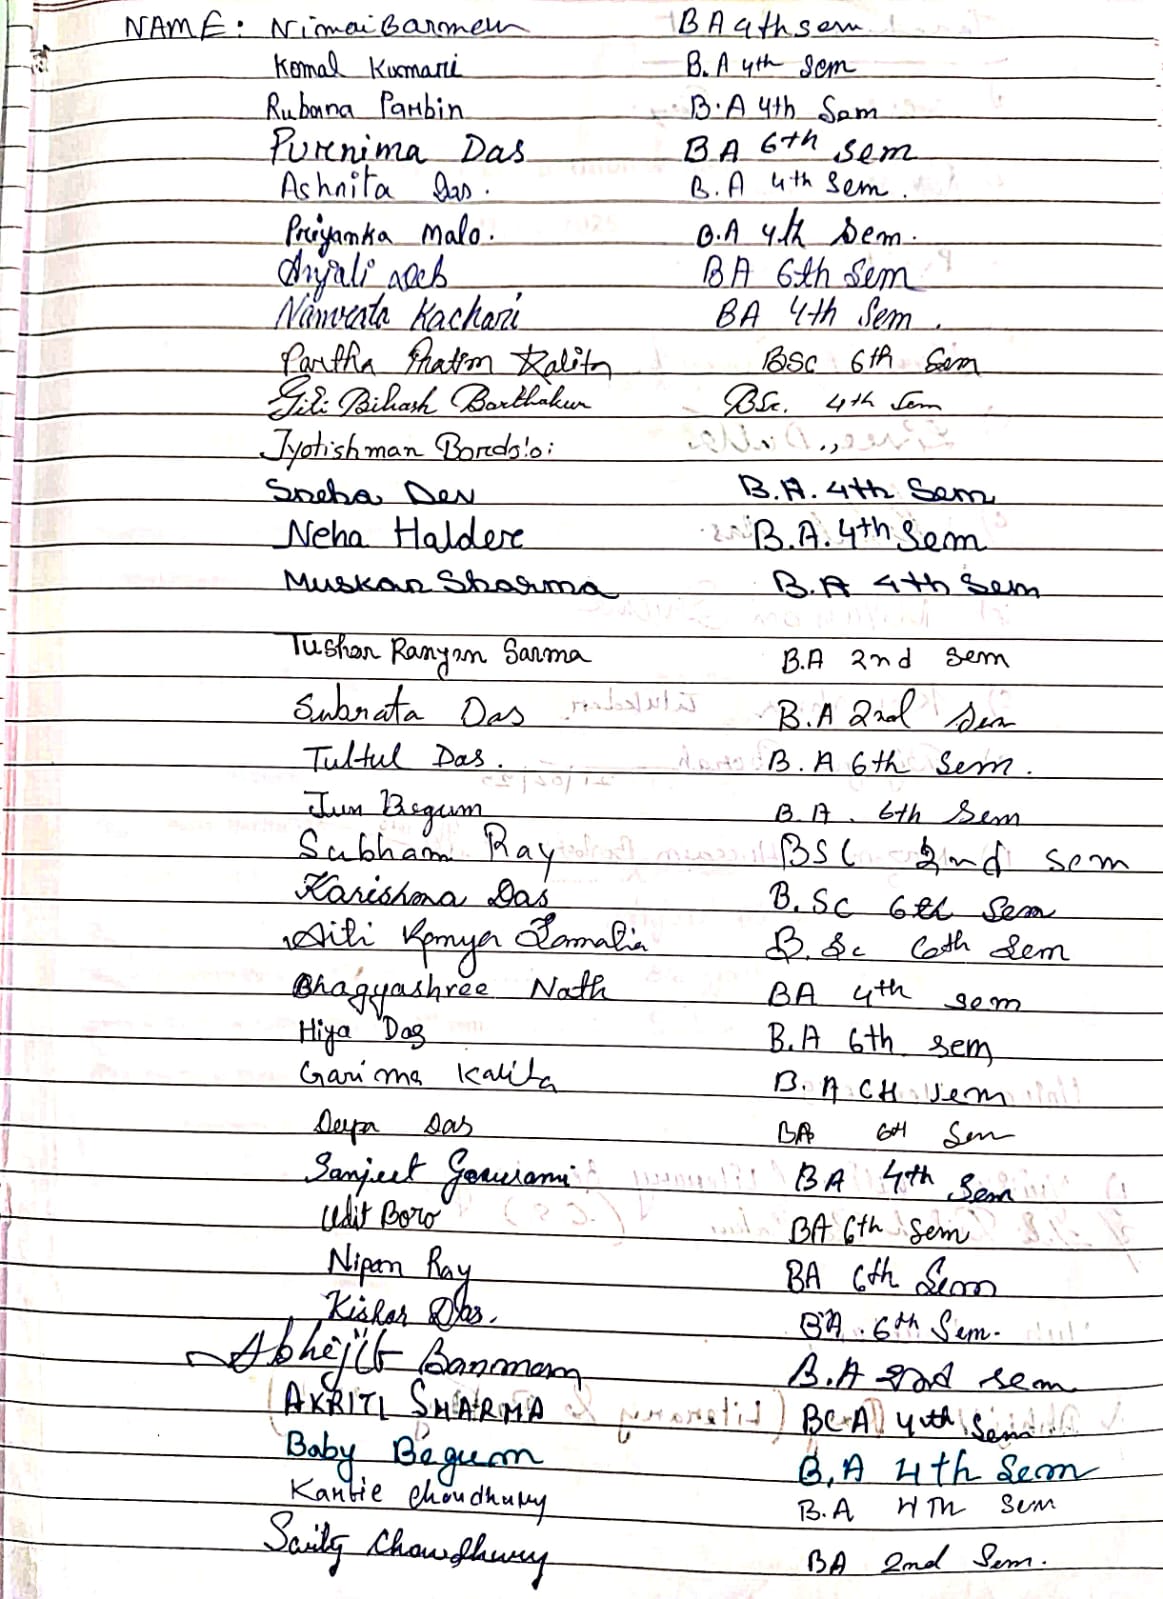 NAME: Nimai Barman BA 4th sem
Komal Kumari B.A 4th Sem
Rubana Parbin B.A 4th Sem
Purnima Das BA 6th sem
Ashnita Das. B.A 4th Sem.
Priyanka Malo. B.A 4th Sem.
Anjali Deb BA 6th Sem
Namrata Kachari BA 4th Sem.
Partha Pratim Kalita BSC 6th Sem
Bikash Borthakur BSc. 4th Sem
Jyotishman Bordoloi
Sneha Dev B.A. 4th Sem
Neha Halder B.A. 4th Sem
Muskan Sharma B.A 4th Sem
Tushar Ranjan Sarma B.A 2nd sem
Subrata Das B.A 2nd Sem
Tultul Das. B.A 6th Sem.
Jun Begum B.A. 6th Sem
Subham Ray BSC 2nd sem
Karishma Das B.Sc 6th Sem
B.Sc 6th Sem
Bhagyashree Nath BA 4th sem
Hiya Das B.A 6th sem
Garima Kalita B.A 6th sem
Deepa Das BA 6th Sem
Sanjeet Goswami BA 4th Sem
Udit Boro BA 6th Sem
Nipan Ray BA 6th Sem
Kishor Das. BA. 6th Sem.
Abhejit Banmam B.A 2nd sem
AKRITI SHARMA BCA 4th Sem
Baby Begum B.A 4th Sem
Kantie Choudhury B.A 4TH Sem
Chowdhury BA 2nd Sem.